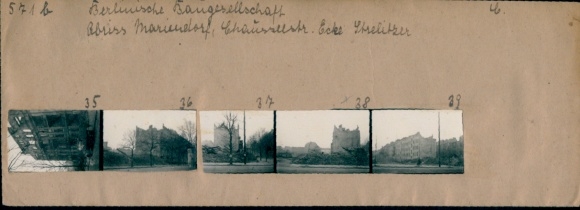 571 b Berlinische Baugesellschaft
Abriss Mariendorf, Chausseestr. Ecke Strelitzer
35 36 37 38 39